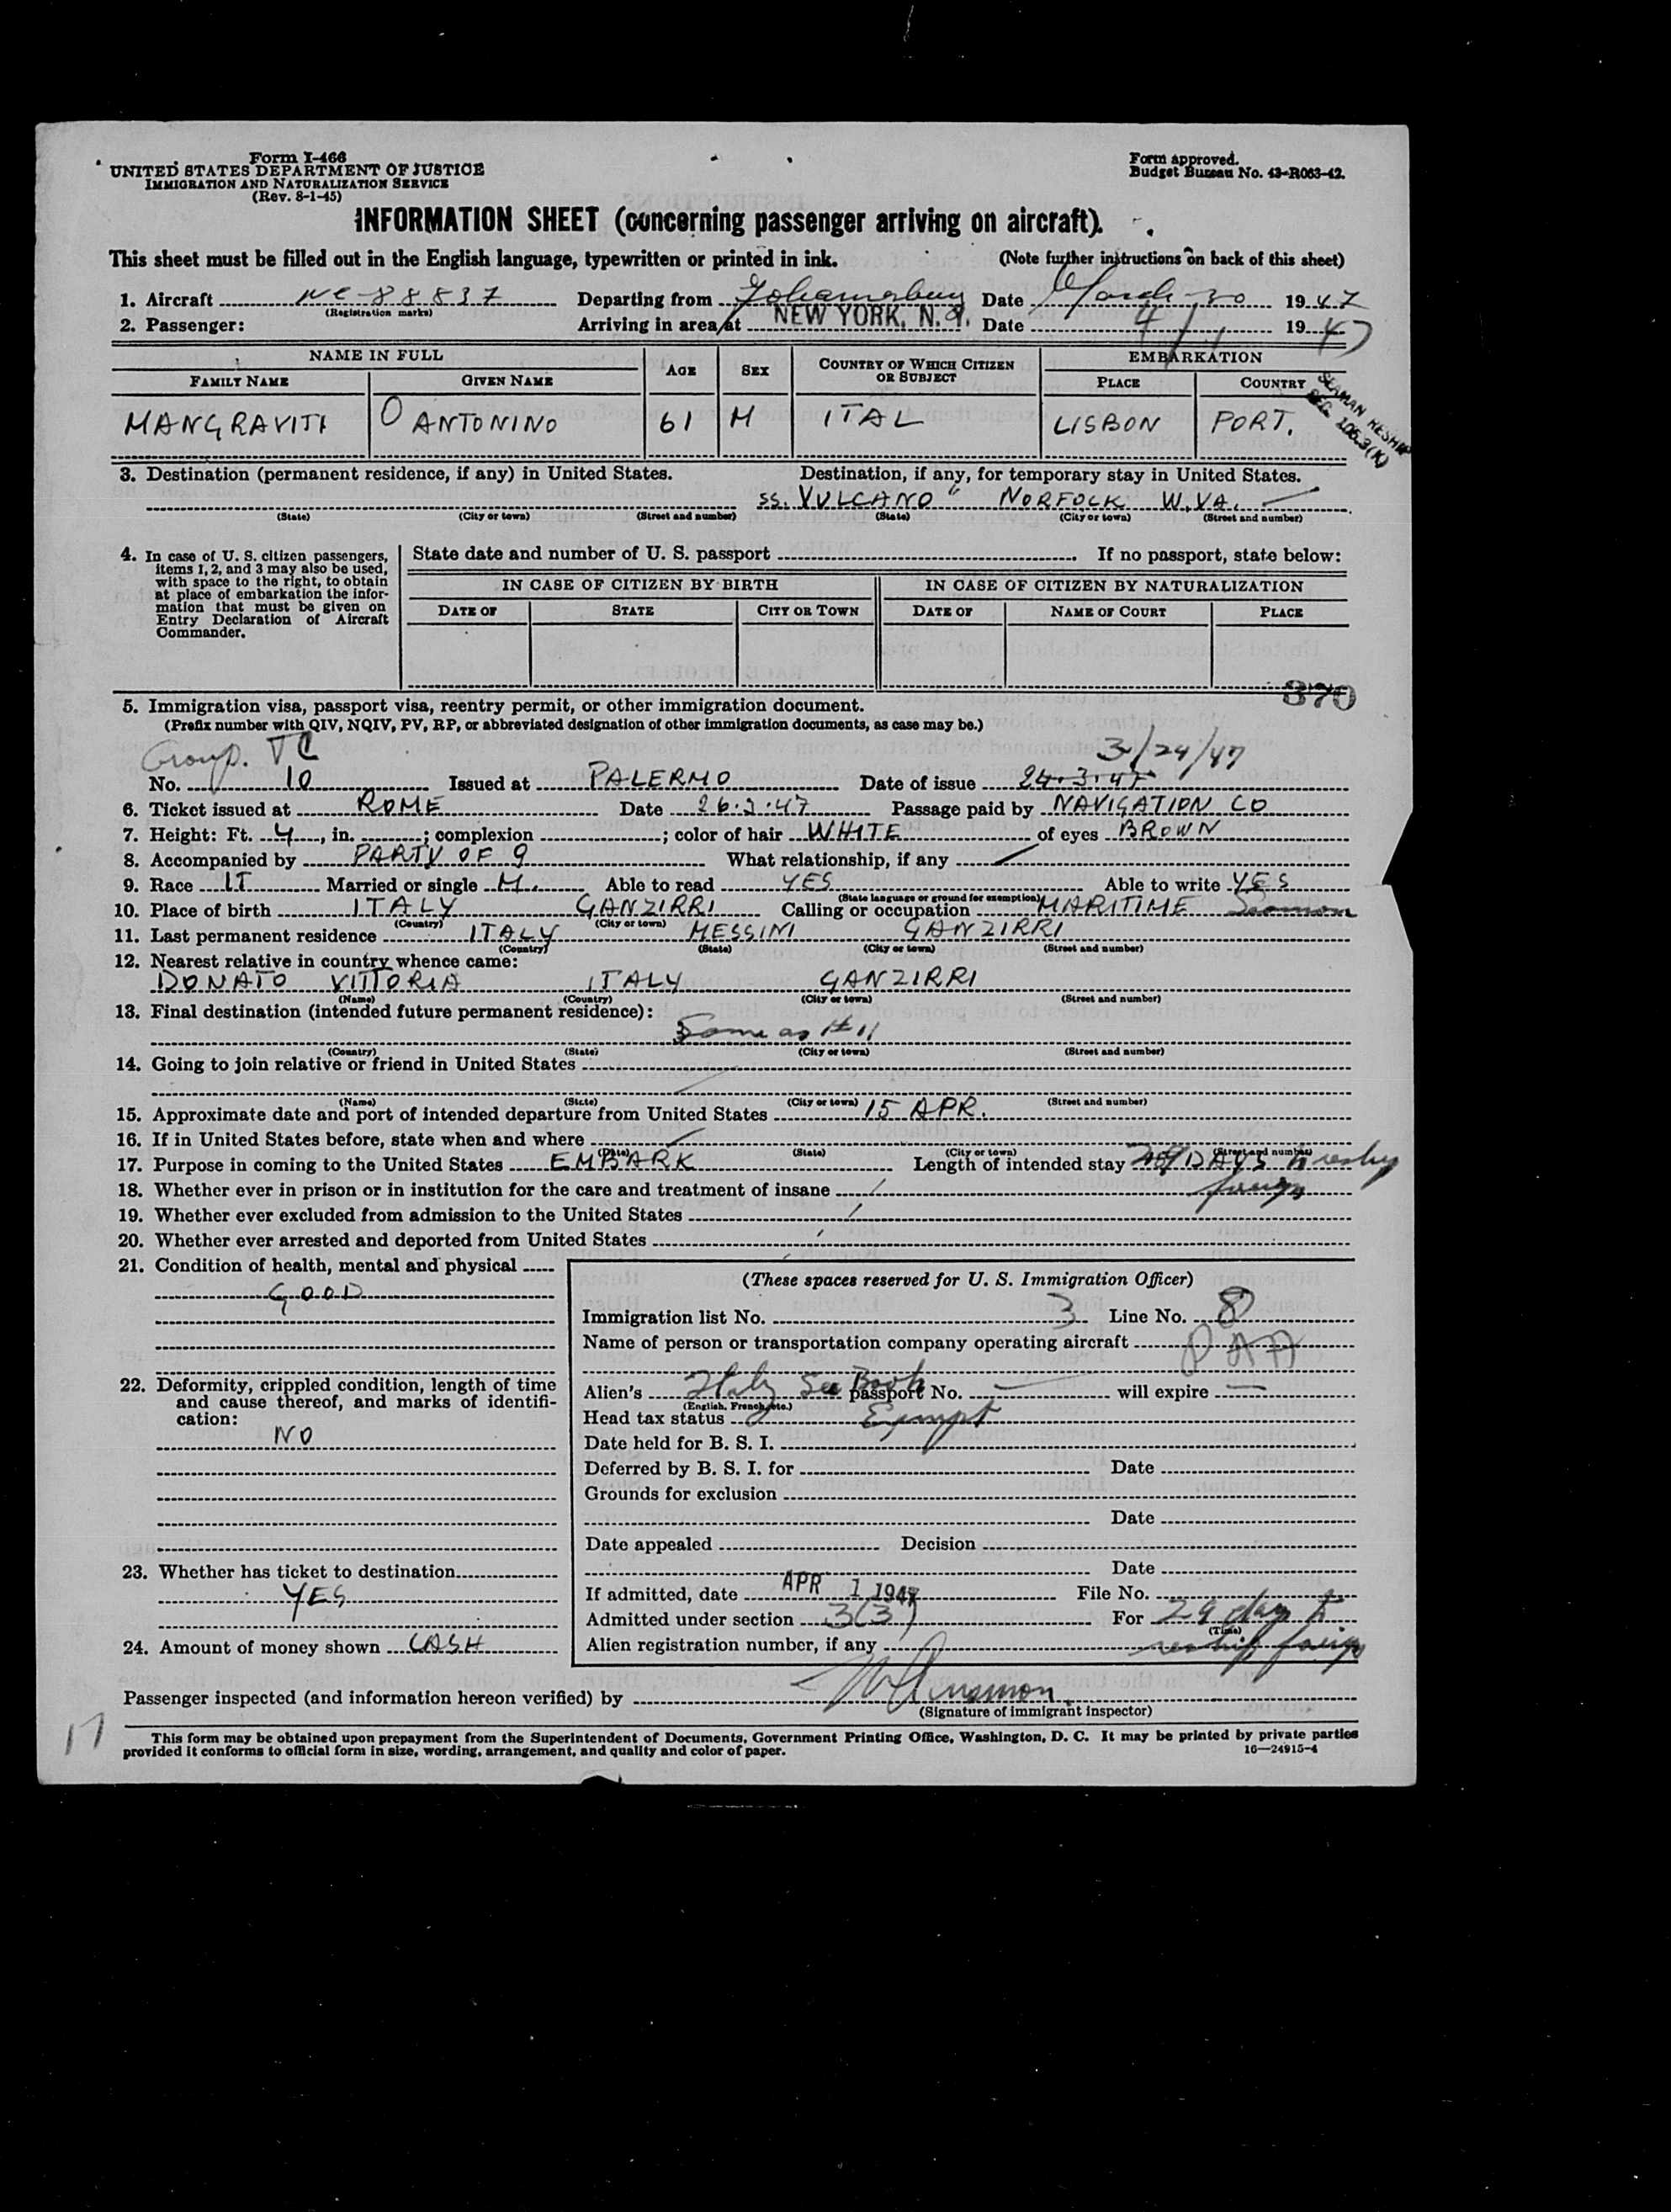 Form I-466
UNITED STATES DEPARTMENT OF JUSTICE
IMMIGRATION AND NATURALIZATION SERVICE
(Rev. 8-1-45)
Form approved.
Budget Bureau No. 43-R063-42.
INFORMATION SHEET (concerning passenger arriving on aircraft).
This sheet must be filled out in the English language, typewritten or printed in ink. (Note further instructions on back of this sheet)
1. Aircraft NC-88837 Departing from Johannesburg Date March 30 1947
(Registration marks)
2. Passenger: Arriving in area/at NEW YORK, N. Y. Date 4/1 1947
NAME IN FULL AGE SEX COUNTRY OF WHICH CITIZEN OR SUBJECT EMBARKATION
FAMILY NAME GIVEN NAME PLACE COUNTRY
MANGRAVITI ANTONINO 61 M ITAL LISBON PORT.
SEAMAN RESHIP
REG. 106.3(K)
3. Destination (permanent residence, if any) in United States. Destination, if any, for temporary stay in United States.
SS. VULCANO" NORFOCK W.VA.
(State) (City or town) (Street and number) (State) (City or town) (Street and number)
4. In case of U. S. citizen passengers, items 1, 2, and 3 may also be used, with space to the right, to obtain at place of embarkation the information that must be given on Entry Declaration of Aircraft Commander.
State date and number of U. S. passport If no passport, state below:
IN CASE OF CITIZEN BY BIRTH IN CASE OF CITIZEN BY NATURALIZATION
DATE OF STATE CITY OR TOWN DATE OF NAME OF COURT PLACE
370
5. Immigration visa, passport visa, reentry permit, or other immigration document.
(Prefix number with QIV, NQIV, PV, RP, or abbreviated designation of other immigration documents, as case may be.)
Group. TC 3/24/47
No. 10 Issued at PALERMO Date of issue 24.3.47
6. Ticket issued at ROME Date 26.3.47 Passage paid by NAVIGATION CO
7. Height: Ft. 4, in. ; complexion ; color of hair WHITE of eyes BROWN
8. Accompanied by PARTY OF 9 What relationship, if any
9. Race IT Married or single M. Able to read YES Able to write YES
(State language or ground for exemption)
10. Place of birth ITALY GANZIRRI Calling or occupation MARITIME Seaman
(Country) (City or town)
11. Last permanent residence ITALY MESSINI GANZIRRI
(Country) (State) (City or town) (Street and number)
12. Nearest relative in country whence came:
DONATO VITTORIA ITALY GANZIRRI
(Name) (Country) (City or town) (Street and number)
13. Final destination (intended future permanent residence):
Same as # 11
(Country) (State) (City or town) (Street and number)
14. Going to join relative or friend in United States
(Name) (State) (City or town) (Street and number)
15. Approximate date and port of intended departure from United States 15 APR.
16. If in United States before, state when and where
(Date) (State) (City or town) (Street and number)
17. Purpose in coming to the United States EMBARK Length of intended stay 29 DAYS to reship
foreign
18. Whether ever in prison or in institution for the care and treatment of insane
19. Whether ever excluded from admission to the United States
20. Whether ever arrested and deported from United States
21. Condition of health, mental and physical
GOOD
22. Deformity, crippled condition, length of time and cause thereof, and marks of identification:
NO
23. Whether has ticket to destination
YES
24. Amount of money shown CASH
(These spaces reserved for U. S. Immigration Officer)
Immigration list No. 3 Line No. 8
Name of person or transportation company operating aircraft PAA
Alien's Italy Sea Book passport No. — will expire —
(English, French, etc.)
Head tax status Exempt
Date held for B. S. I.
Deferred by B. S. I. for Date
Grounds for exclusion
Date
Date appealed Decision
Date
If admitted, date APR 1 1947 File No.
Admitted under section 3(3) For 29 days to
(Time)
Alien registration number, if any reship foreign
Passenger inspected (and information hereon verified) by
(Signature of immigrant inspector)
17
This form may be obtained upon prepayment from the Superintendent of Documents, Government Printing Office, Washington, D. C. It may be printed by private parties
provided it conforms to official form in size, wording, arrangement, and quality and color of paper. 16—24915-4